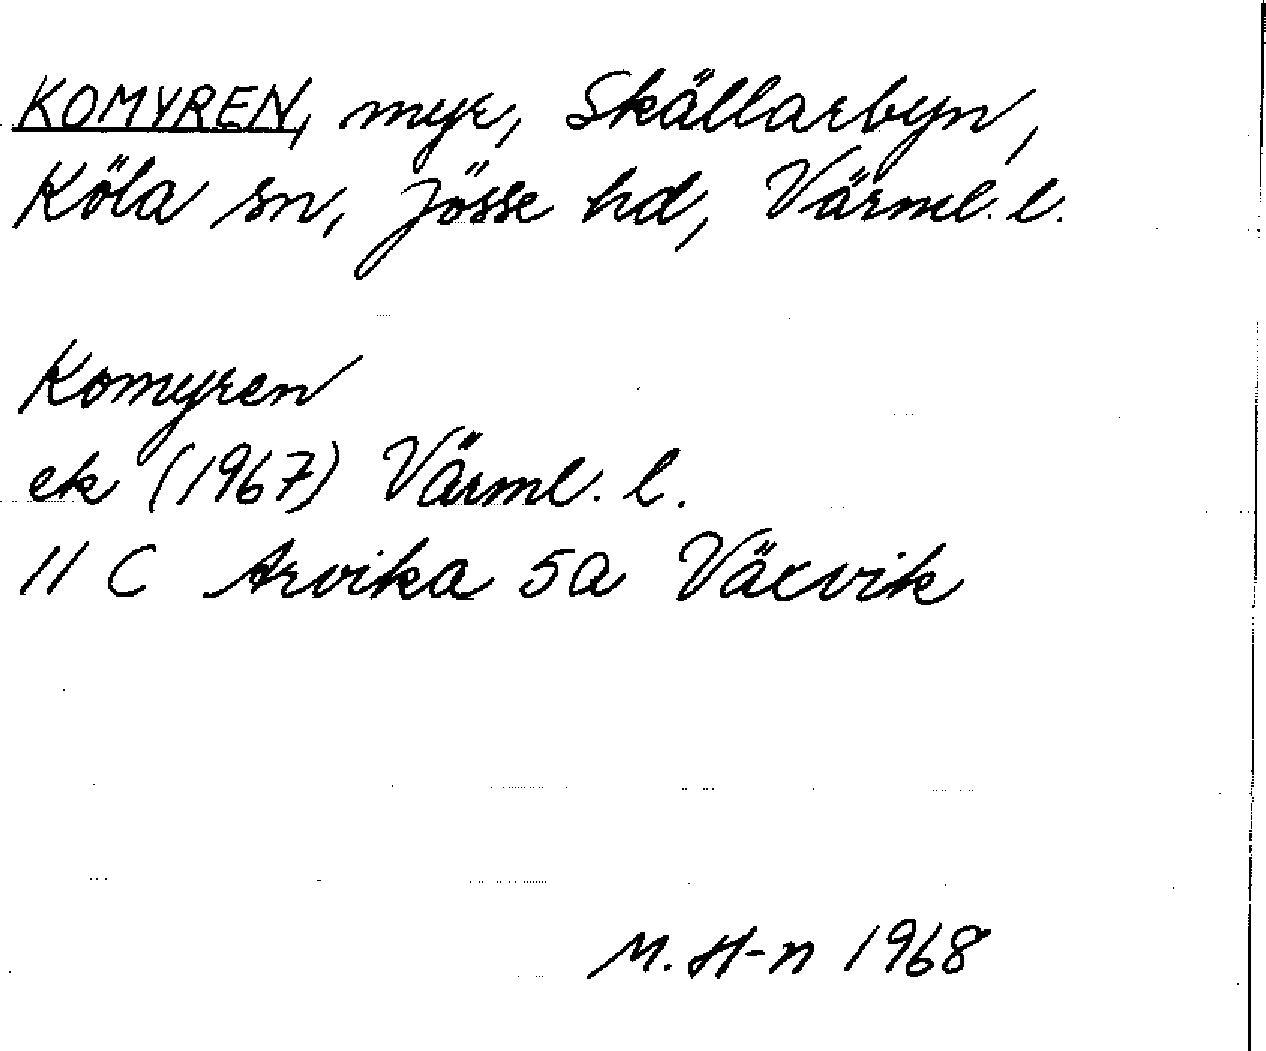 KOMYREN, myr, Skällarbyn,
Köla sn, Jösse hd, Värml. l.
Komyren
ek (1967) Värml. l.
11 C Arvika 5a Växvik
M. H-n 1968